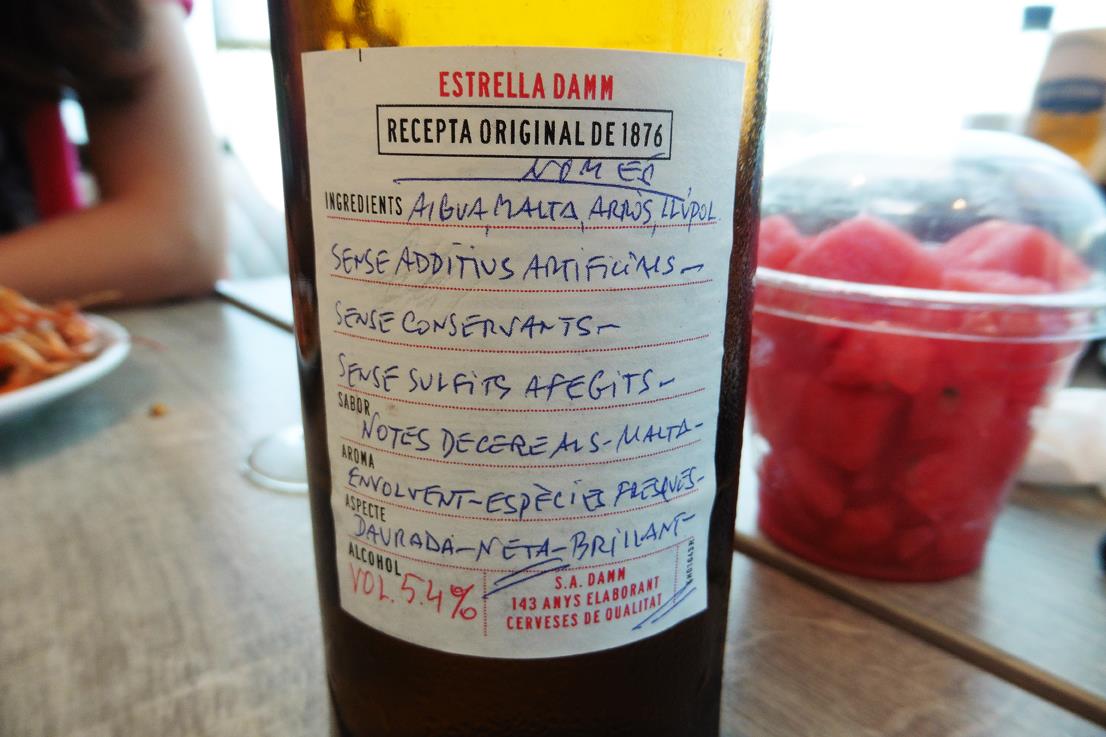 ESTRELLA DAMM
RECEPTA ORIGINAL DE 1876
NOMÉS
INGREDIENTS AIGUA, MALTA, ARRÒS, LLÚPOL.
SENSE ADDITIUS ARTIFICIALS-
SENSE CONSERVANTS-
SENSE SULFITS AFEGITS-
SABOR
NOTES DE CEREALS-MALTA-
AROMA
ENVOLVENT-ESPÈCIES FRESQUES-
ASPECTE
DAURADA-NETA-BRILLANT-
ALCOHOL
VOL. 5.4%
S.A. DAMM
143 ANYS ELABORANT
CERVESES DE QUALITAT